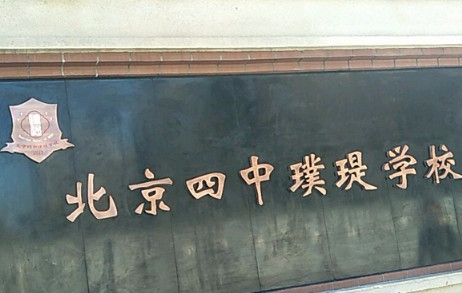 北京四中璞瑅学校